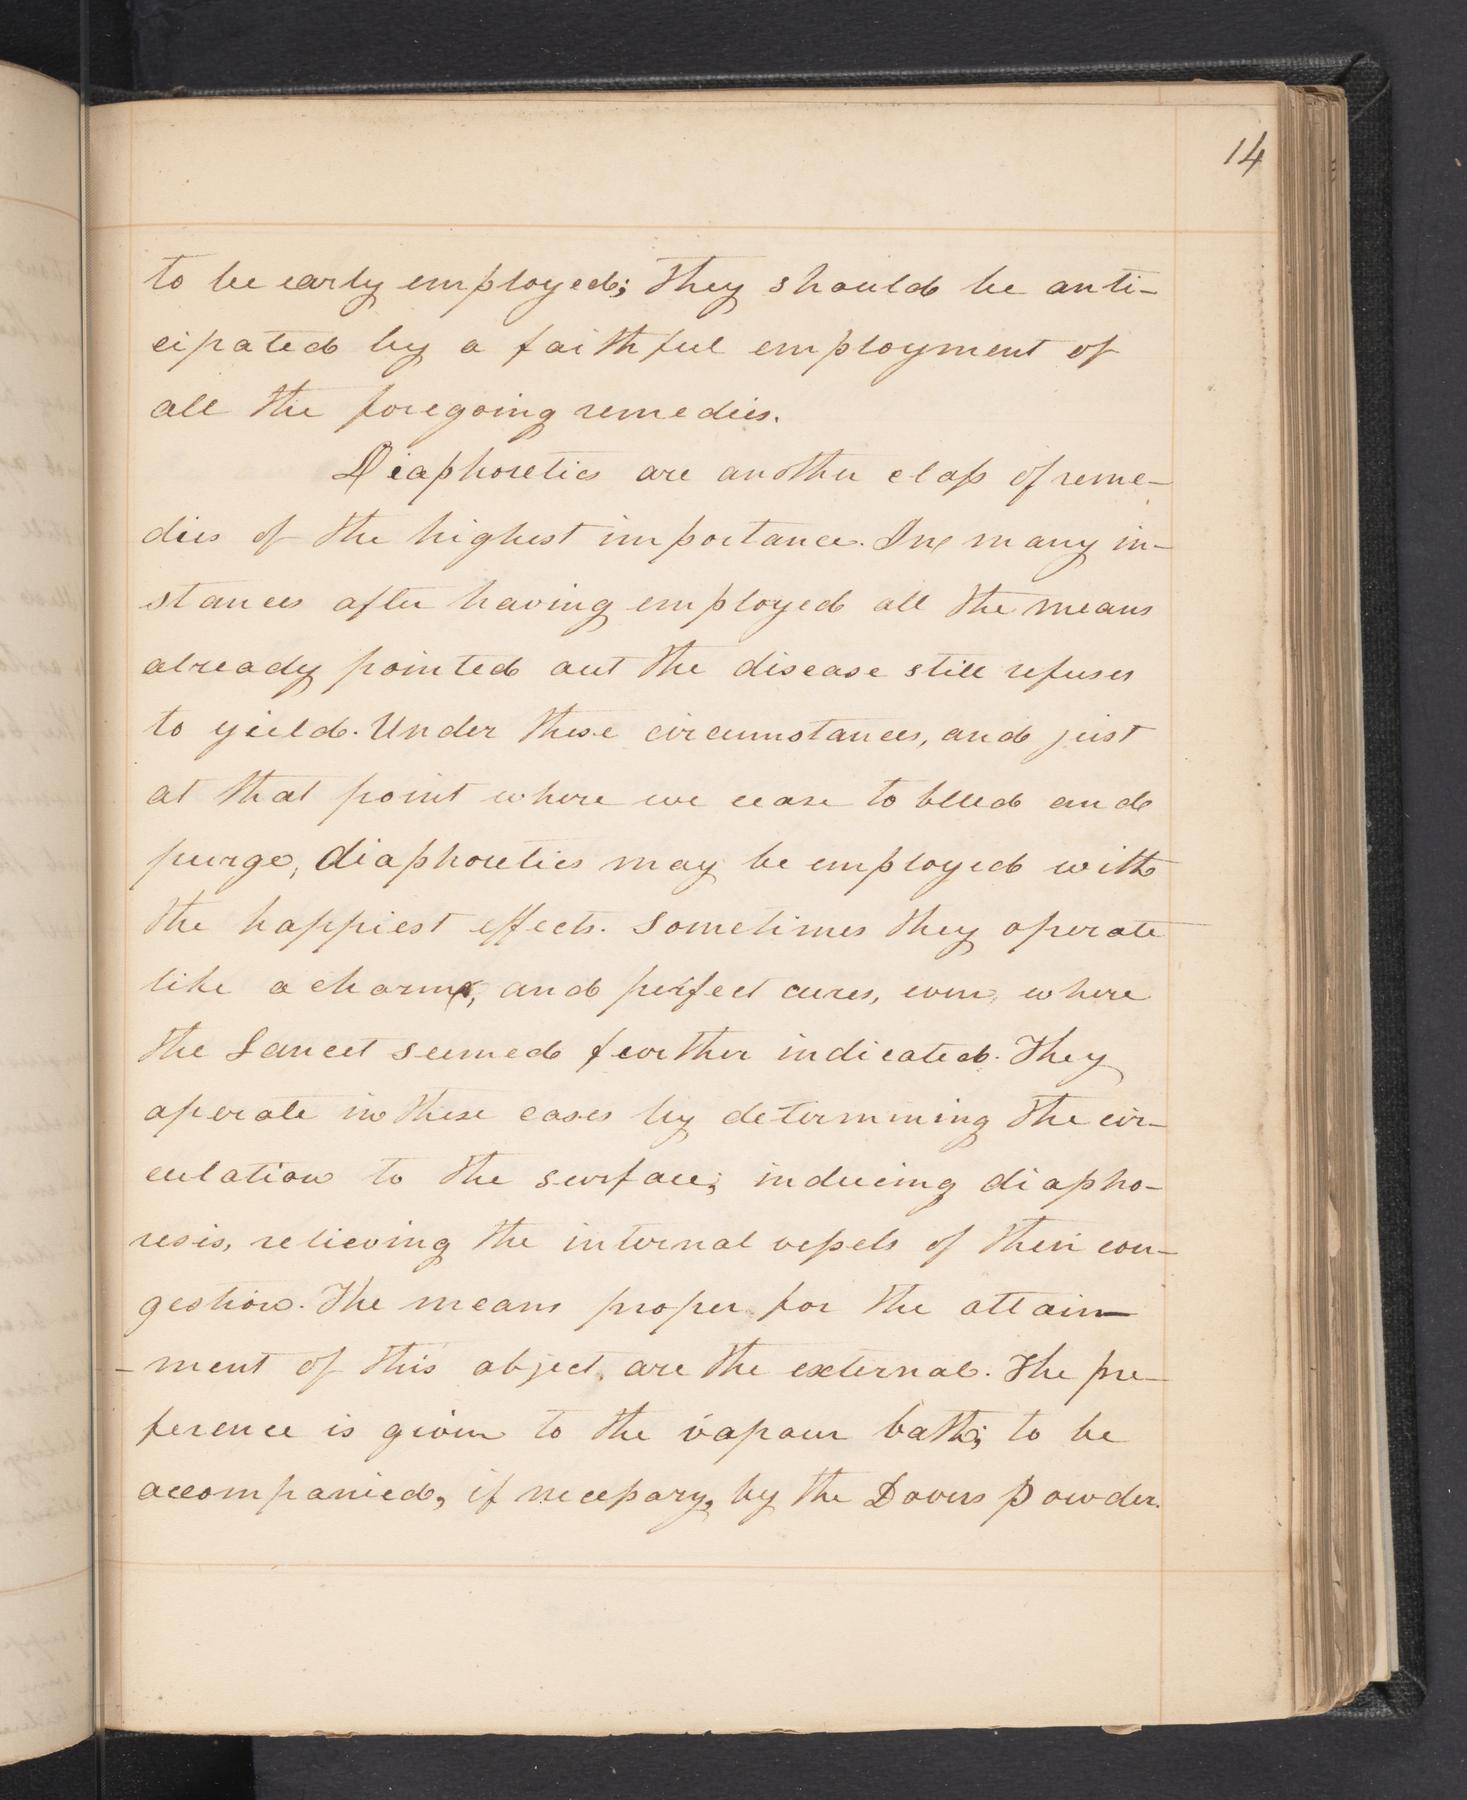 14
to be early employed; They should be anti-
cipated by a faithful employment of
all the foregoing remedies.
Diaphoretics are another class of reme-
dies of the highest importance. In many in-
stances after having employed all the means
already pointed out the disease still refuses
to yield. Under these circumstances, and just
at that point where we cease to bleed and
purge, diaphoretics may be employed with
the happiest effects. Sometimes they operate
like a charm, and perfect cures, even, where
the Lancet seemed further indicated. They
operate in these cases by determining the cir-
culation to the surface; inducing diapho-
resis, relieving the internal vessels of their con-
gestion. The means proper for the attain-
-ment of this object, are the external. The pre-
ference is given to the vapour bath; to be
accompanied, if necessary, by the Dovers Powder.